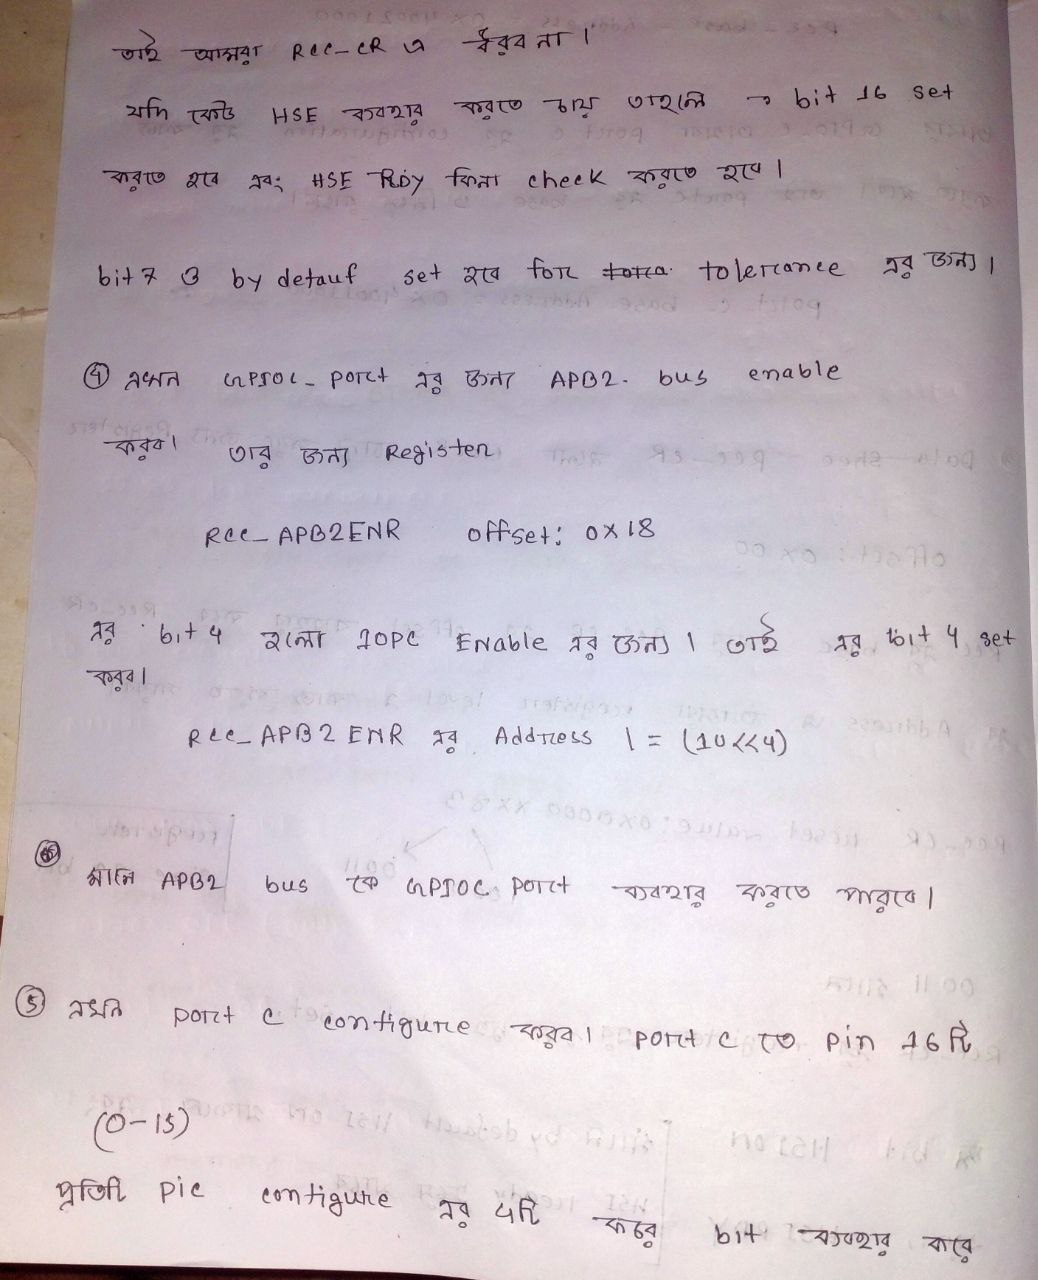 তাই আমরা RCC_CR এ করব না।
যদি কেউ HSE ব্যবহার করতে চায় তাহলে → bit 16 set
করতে হবে এবং HSE RDY কিনা check করতে হবে।
bit 7 ও by defauf set হবে for tolerance এর জন্য।
④ এখন GPIOC_ port এর জন্য APB2. bus enable
করব। তার জন্য Register
RCC_ APB2ENR offset: 0x18
এর bit 4 হলো IOPC Enable এর জন্য। তাই এর bit 4 set
করব।
RCC_ APB2 ENR এর Address |= (1U<<4)
মানে APB2 bus কে GPIOC port ব্যবহার করতে পারবে।
⑤ এখন port C configure করব। port C তে pin 16 টি
(0-15)
প্রতিটি pic configure এর ৪টি করে bit ব্যবহার করে